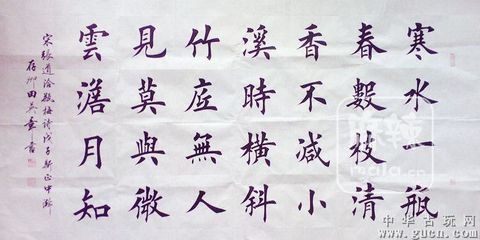 寒水一瓶
春數枝清
香不减小
溪時横斜
竹底無人
見莫與微
雲澹月知
宋張道洽瓶梅詩戊子新正中澣
田英章書
中华古玩网
www.gucn.com